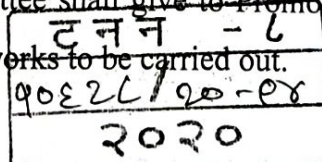 shall give to Promo
ट न न - ८
works to be carried out.
१०६२८/२०-९४
२०२०